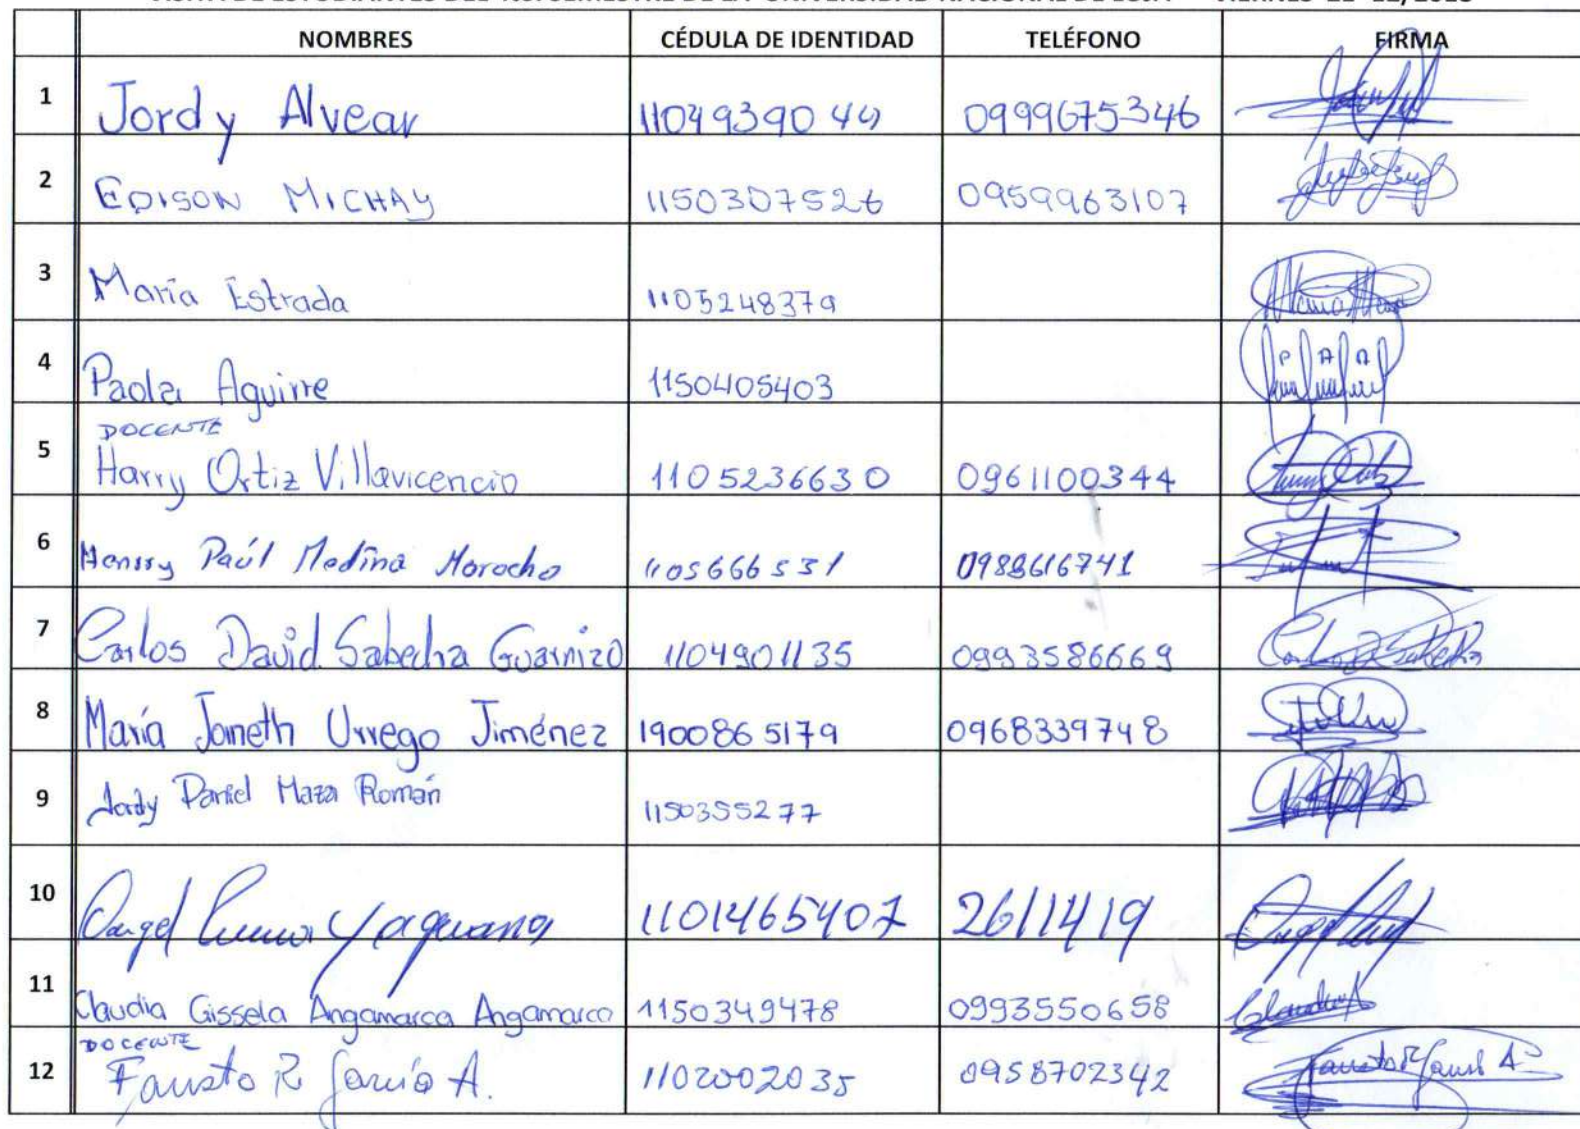 NOMBRES CÉDULA DE IDENTIDAD TELÉFONO FIRMA
1 Jordy Alvear 1104939044 0999675346
2 EDISON MICHAY 1150307526 0959963107
3 María Estrada 1105248379
4 Paola Aguirre 1150405403
DOCENTE
5 Harry Ortiz Villavicencio 1105236630 0961100344
6 Henrry Paúl Medina Morocho 1105666531 0988616741
7 Carlos David Sabedra Guarnizo 1104901135 0993586669
8 María Janeth Urrego Jiménez 1900865179 0968339748
9 Jordy Daniel Maza Román 1150355277
10 Angel Yaguana 1101465407 2611419
11 Claudia Gissela Angamarca Angamarca 1150349478 0993550658
DOCENTE
12 Fausto R García A. 1102002035 0958702342